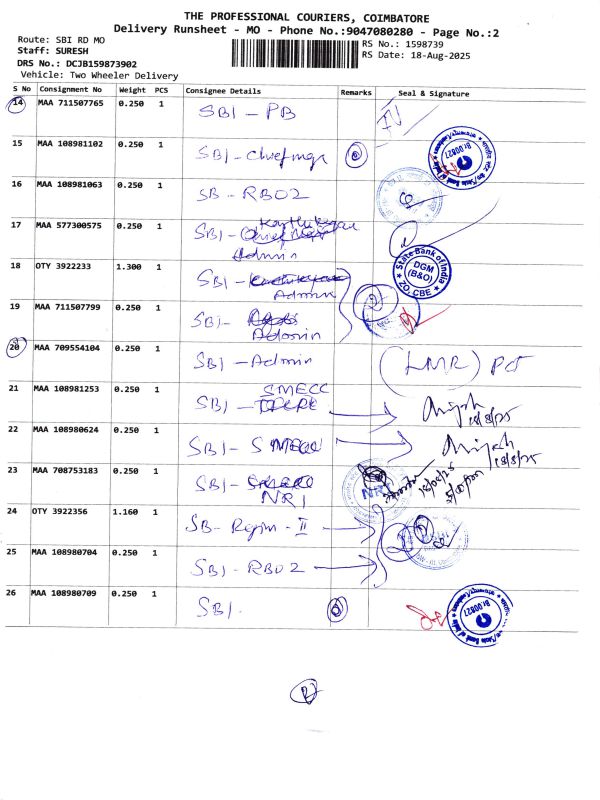 THE PROFESSIONAL COURIERS, COIMBATORE
Delivery Runsheet - MO - Phone No.:9047080280 - Page No.:2
Route: SBI RD MO
RS No.: 1598739
Staff: SURESH
RS Date: 18-Aug-2025
DRS No.: DCJB159873902
Vehicle: Two Wheeler Delivery
S No Consignment No Weight PCS Consignee Details Remarks Seal & Signature
14 MAA 711507765 0.250 1 SBI - PB
15 MAA 108981102 0.250 1 SBI - Chief mgr
16 MAA 108981063 0.250 1 SB - RBO2
17 MAA 577300575 0.250 1 SBI - Admin
State Bank of India
DGM
(B&O)
ZO, CBE
18 OTY 3922233 1.300 1 SBI - Admin
19 MAA 711507799 0.250 1 SBI - Admin
20 MAA 709554104 0.250 1 SBI - Admin (LMR)
21 MAA 108981253 0.250 1 SBI - SMECC 18/8/25
22 MAA 108980624 0.250 1 SBI - SMECC 18/8/25
23 MAA 708753183 0.250 1 SBI - NRI NRI
24 OTY 3922356 1.160 1 SB - Region - II
25 MAA 108980704 0.250 1 SBI - RBO2
26 MAA 108980709 0.250 1 SBI. Br.00827